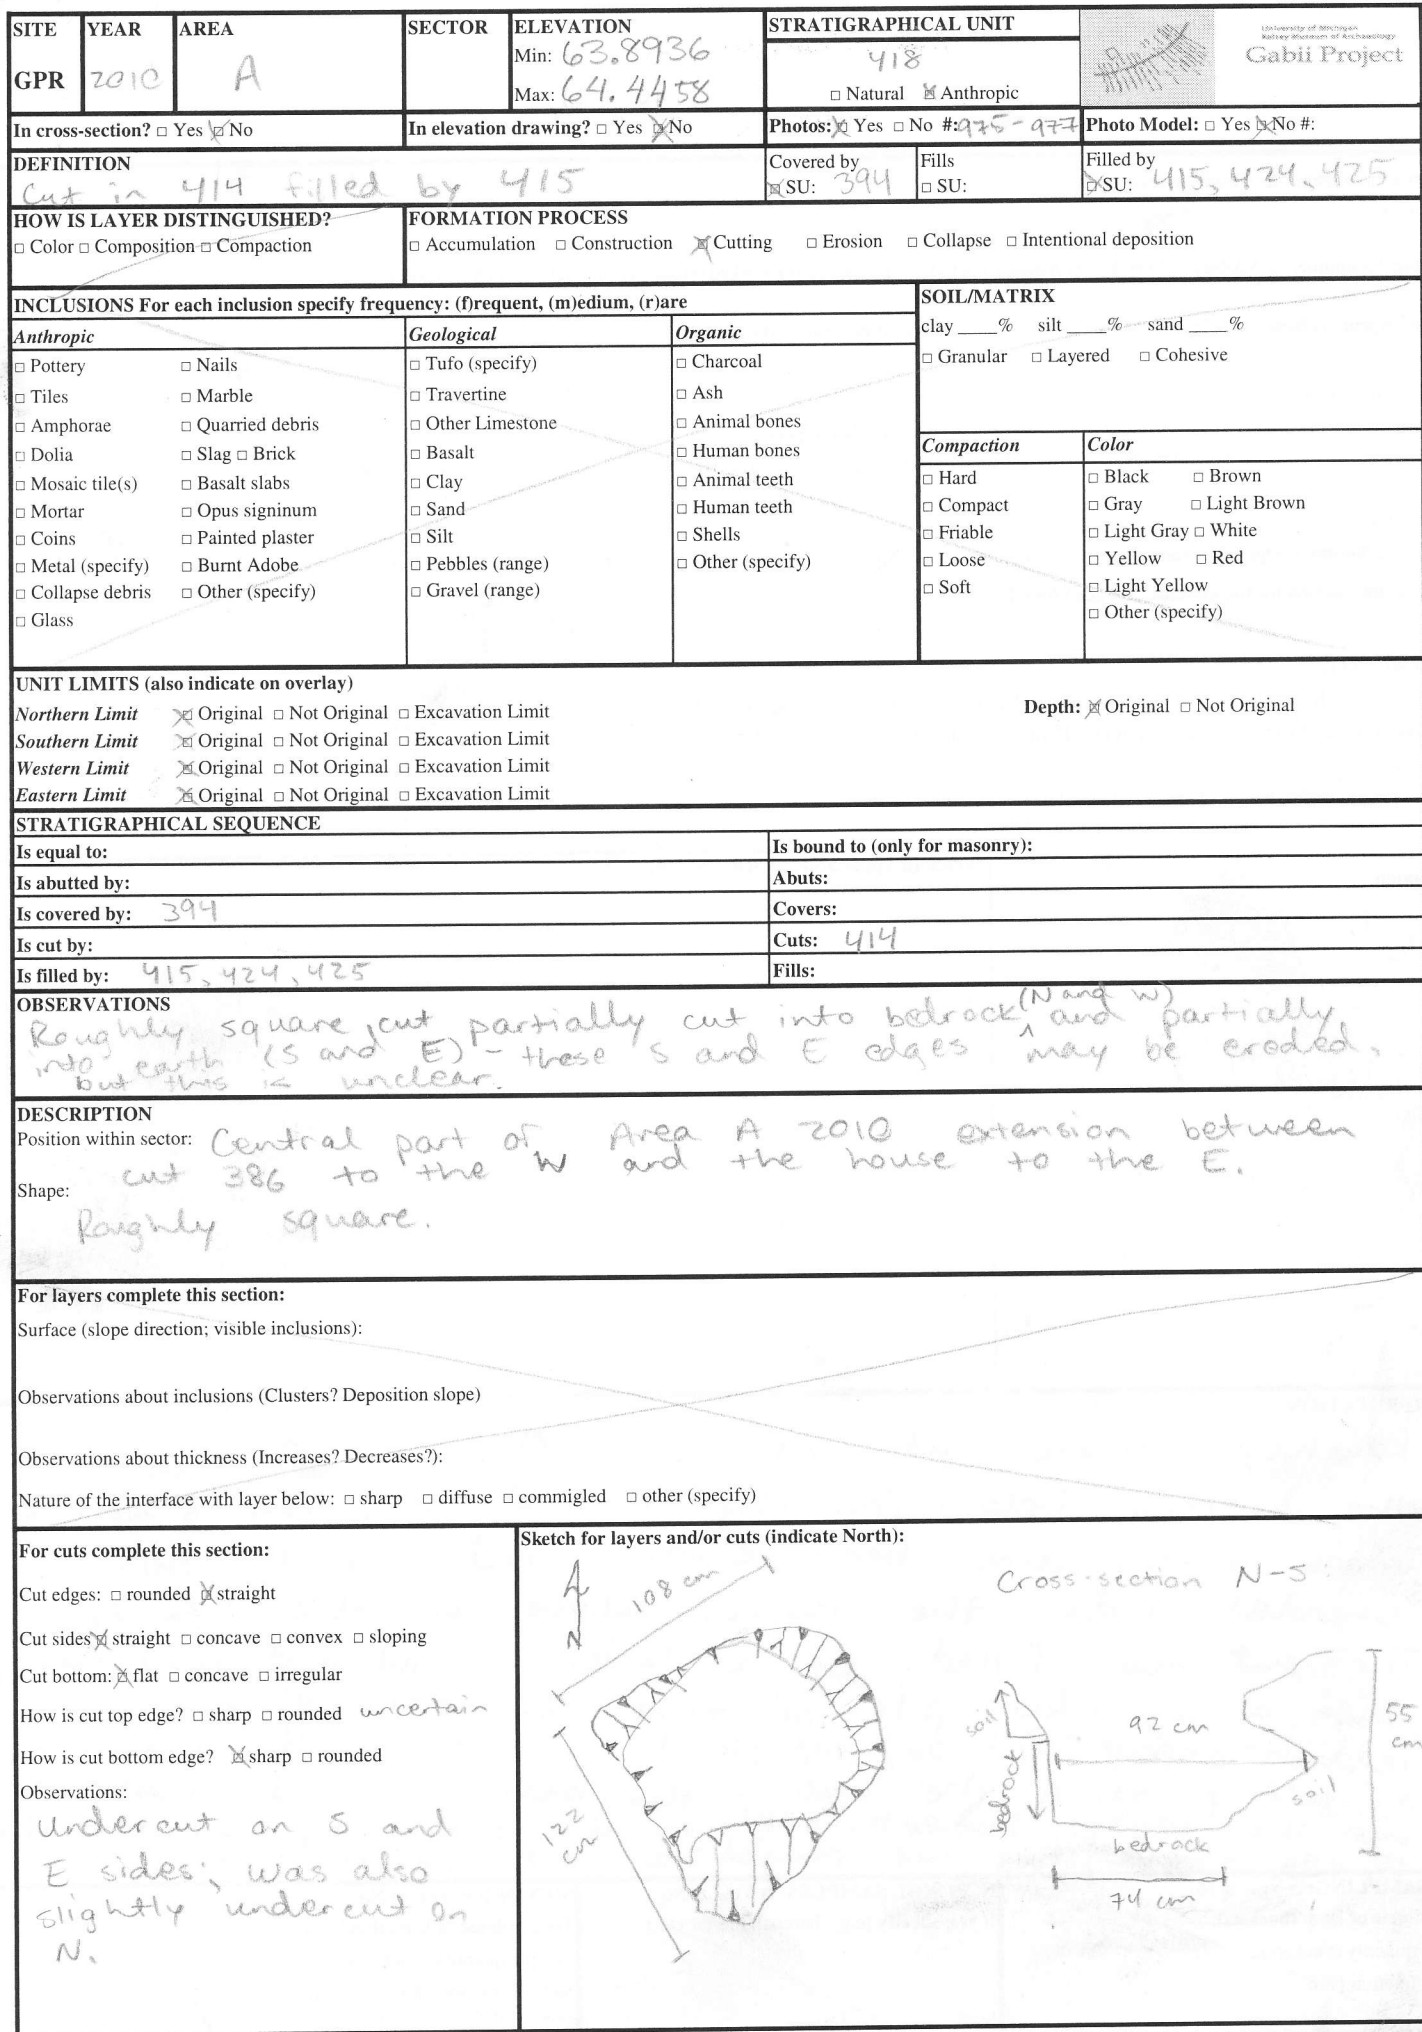 SITE YEAR AREA SECTOR ELEVATION STRATIGRAPHICAL UNIT
GPR 2010 A Min: 63.8936 Max: 64.4458 418
□ Natural ☒ Anthropic
University of Michigan
Kelsey Museum of Archaeology
Gabii Project
In cross-section? □ Yes ☒ No In elevation drawing? □ Yes ☒ No Photos: ☒ Yes □ No #: 975-977 Photo Model: □ Yes ☒ No #:
DEFINITION
Cut in 414 filled by 415
Covered by
☒ SU: 394
Fills
□ SU:
Filled by
☒ SU: 415, 424, 425
HOW IS LAYER DISTINGUISHED?
□ Color □ Composition □ Compaction
FORMATION PROCESS
□ Accumulation □ Construction ☒ Cutting □ Erosion □ Collapse □ Intentional deposition
INCLUSIONS For each inclusion specify frequency: (f)requent, (m)edium, (r)are
Anthropic
□ Pottery □ Nails
□ Tiles □ Marble
□ Amphorae □ Quarried debris
□ Dolia □ Slag □ Brick
□ Mosaic tile(s) □ Basalt slabs
□ Mortar □ Opus signinum
□ Coins □ Painted plaster
□ Metal (specify) □ Burnt Adobe
□ Collapse debris □ Other (specify)
□ Glass
Geological
□ Tufo (specify)
□ Travertine
□ Other Limestone
□ Basalt
□ Clay
□ Sand
□ Silt
□ Pebbles (range)
□ Gravel (range)
Organic
□ Charcoal
□ Ash
□ Animal bones
□ Human bones
□ Animal teeth
□ Human teeth
□ Shells
□ Other (specify)
SOIL/MATRIX
clay ____% silt ____% sand ____%
□ Granular □ Layered □ Cohesive
Compaction
□ Hard
□ Compact
□ Friable
□ Loose
□ Soft
Color
□ Black □ Brown
□ Gray □ Light Brown
□ Light Gray □ White
□ Yellow □ Red
□ Light Yellow
□ Other (specify)
UNIT LIMITS (also indicate on overlay)
Northern Limit ☒ Original □ Not Original □ Excavation Limit
Southern Limit ☒ Original □ Not Original □ Excavation Limit
Western Limit ☒ Original □ Not Original □ Excavation Limit
Eastern Limit ☒ Original □ Not Original □ Excavation Limit
Depth: ☒ Original □ Not Original
STRATIGRAPHICAL SEQUENCE
Is equal to: Is bound to (only for masonry):
Is abutted by: Abuts:
Is covered by: 394 Covers:
Is cut by: Cuts: 414
Is filled by: 415, 424, 425 Fills:
OBSERVATIONS
(N and W)
Roughly square cut, partially cut into bedrock ^ and partially
into earth (S and E) - these S and E edges may be eroded,
but this is unclear.
DESCRIPTION
Position within sector: Central part of Area A 2010 extension between
cut 386 to the W and the house to the E.
Shape:
Roughly square.
For layers complete this section:
Surface (slope direction; visible inclusions):
Observations about inclusions (Clusters? Deposition slope)
Observations about thickness (Increases? Decreases?):
Nature of the interface with layer below: □ sharp □ diffuse □ commigled □ other (specify)
For cuts complete this section:
Cut edges: □ rounded ☒ straight
Cut sides ☒ straight □ concave □ convex □ sloping
Cut bottom: ☒ flat □ concave □ irregular
How is cut top edge? □ sharp □ rounded uncertain
How is cut bottom edge? ☒ sharp □ rounded
Observations:
Undercut on S and
E sides; was also
slightly undercut on
N.
Sketch for layers and/or cuts (indicate North):
N
108 cm
122 cm
Cross-section N-S
soil
bedrock
92 cm
55 cm
soil
bedrock
74 cm